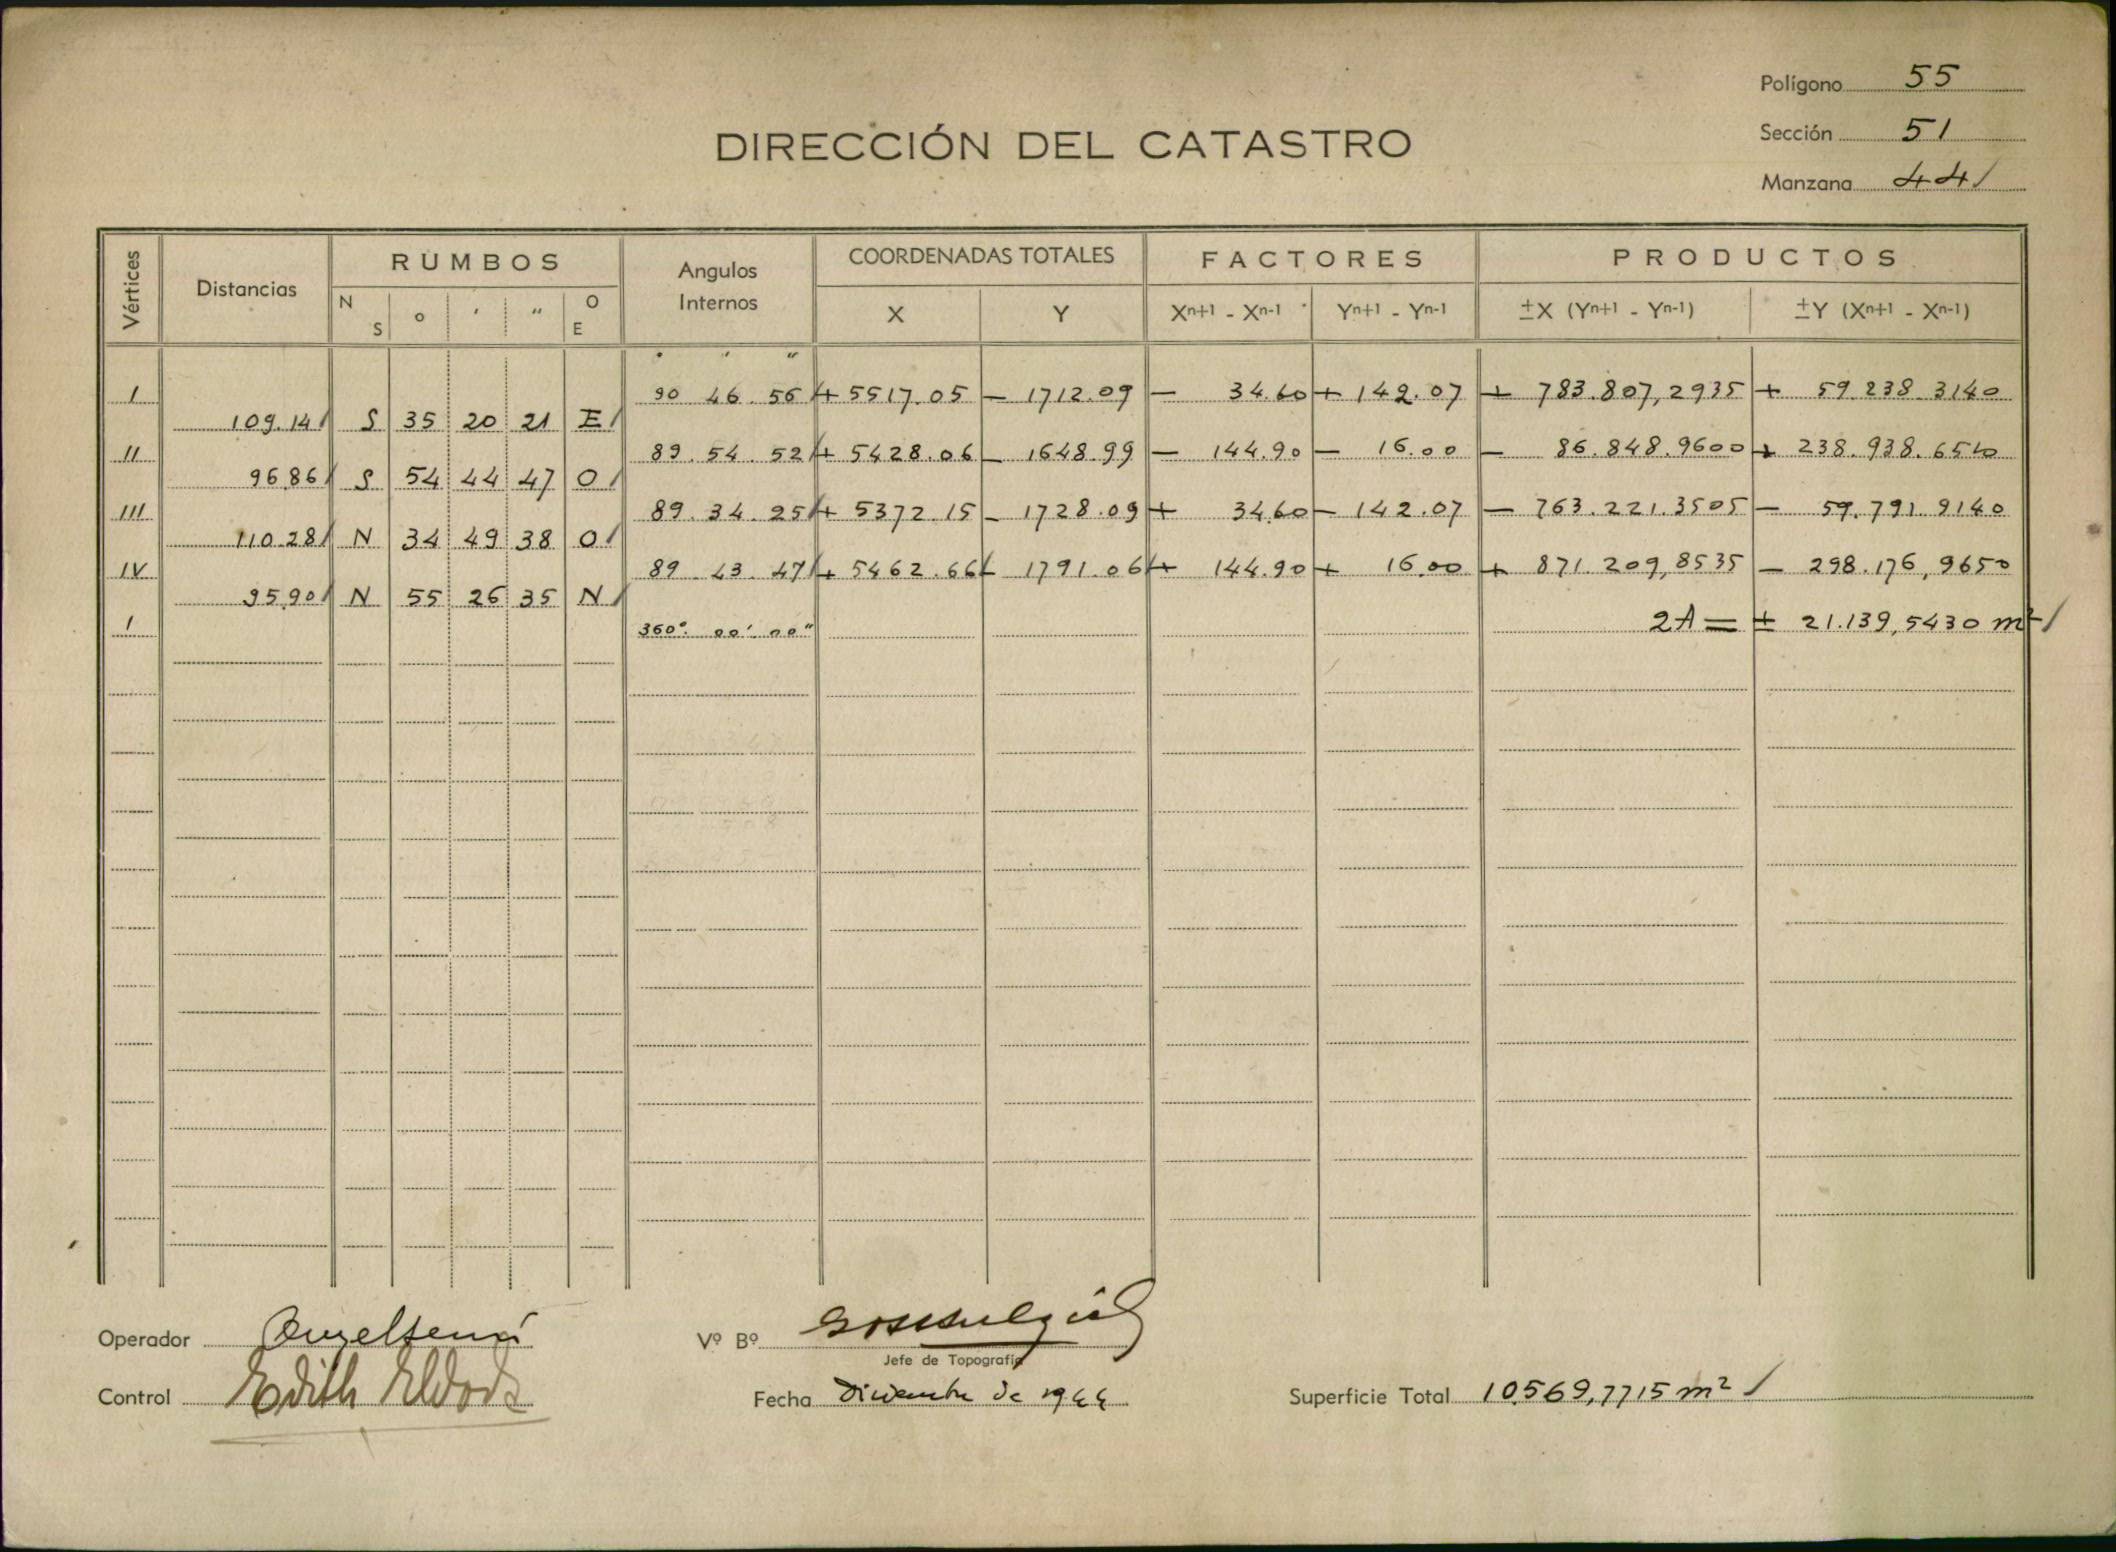 Polígono 55
DIRECCIÓN DEL CATASTRO
Sección 51
Manzana 44
Vértices Distancias RUMBOS Angulos Internos COORDENADAS TOTALES FACTORES PRODUCTOS
N S o ' " O E X Y Xn+1 - Xn-1 Yn+1 - Yn-1 ±X (Yn+1 - Yn-1) ±Y (Xn+1 - Xn-1)
° ' "
I 90 46 56 + 5517.05 - 1712.09 - 34.60 + 142.07 + 783.807,2935 + 59.238.3140
109.14 S 35 20 21 E
II 89 54 52 + 5428.06 - 1648.99 - 144.90 - 16.00 - 86.848.9600 + 238.938.6510
96.86 S 54 44 47 O
III 89 34 25 + 5372.15 - 1728.09 + 34.60 - 142.07 - 763.221.3505 - 59.791.9140
110.28 N 34 49 38 O
IV 89 43 47 + 5462.66 - 1791.06 + 144.90 + 16.00 + 871.209,8535 - 298.176,9650
95.90 N 55 26 35 N
I 360° 00' 00" 2A = ± 21.139,5430 m²
Operador
Vº Bº
Jefe de Topografía
Control Edith
Fecha Diciembre de 1944
Superficie Total 10.569,7715 m²